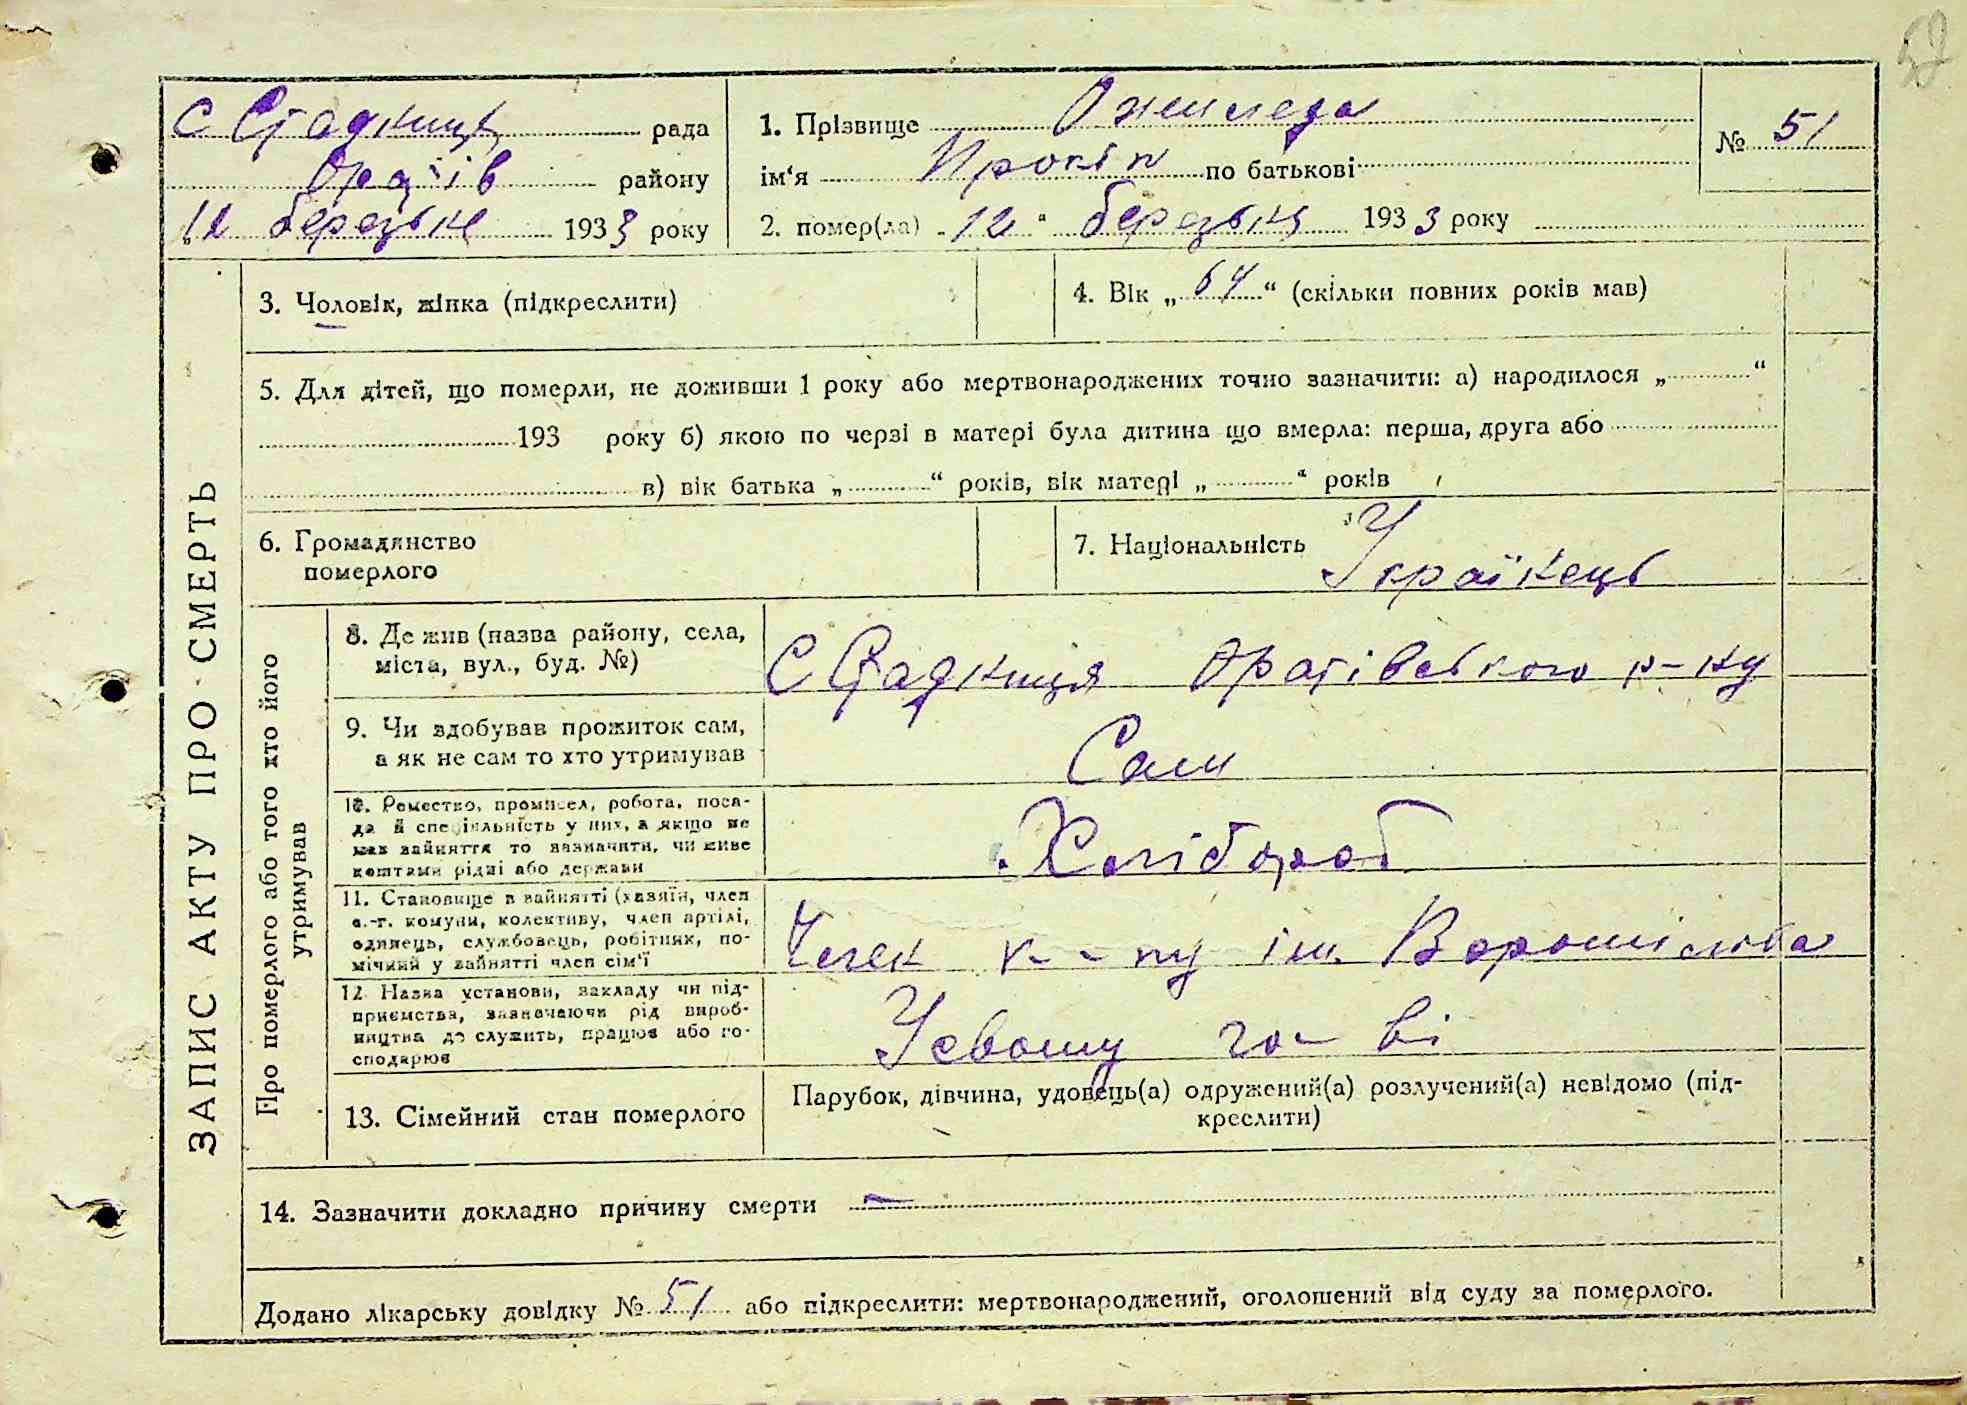 52
с Стадниця рада
Оратів району
„12 березня 1933 року
1. Прізвище Ожиледа
ім'я Прокіп по батькові
2. помер(ла) „12“ березня 1933 року
№ 51
ЗАПИС АКТУ ПРО СМЕРТЬ
3. Чоловік, жінка (підкреслити)
4. Вік „64“ (скільки повних років мав)
5. Для дітей, що померли, не доживши 1 року або мертвонароджених точно зазначити: а) народилося „ “
193 року б) якою по черзі в матері була дитина що вмерла: перша, друга або
в) вік батька „ “ років, вік матері „ “ років
6. Громадянство
померлого
7. Національність Українець
Про померлого або того хто його
утримував
8. Де жив (назва району, села,
міста, вул., буд. №)
с Стадниця Оратівського р-ну
9. Чи здобував прожиток сам,
а як не сам то хто утримував
Сам
10. Ремество, промисел, робота, поса-
да й спеціяльність у них, а якщо не
мав зайняття то зазначити, чи живе
коштами рідні або держави
Хлібороб
11. Становище в зайнятті (хазяїн, член
с.-г. комуни, колективу, член артілі,
одинець, службовець, робітник, по-
мічний у зайнятті член сім'ї
Член к--пу ім. Ворошілова
12 Назва установи, закладу чи під-
приємства, зазначаючи рід вироб-
ництва де служить, працює або го-
сподарює
У свому го-ві
13. Сімейний стан померлого
Парубок, дівчина, удовець(а) одружений(а) розлучений(а) невідомо (під-
креслити)
14. Зазначити докладно причину смерти —
Додано лікарську довідку № 51 або підкреслити: мертвонароджений, оголошений від суду за померлого.